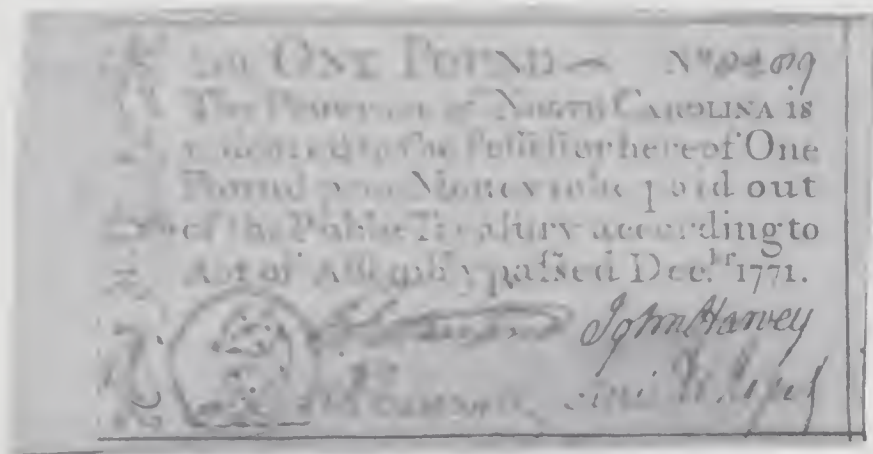 ONE POUND — No 9409
The Province of NORTH CAROLINA is
indebted to the Poſſeſſor hereof One
Pound proc Money to be paid out
of the Public Treaſury according to
Act of Aſſembly paſſed Dec.br 1771.
John Harvey